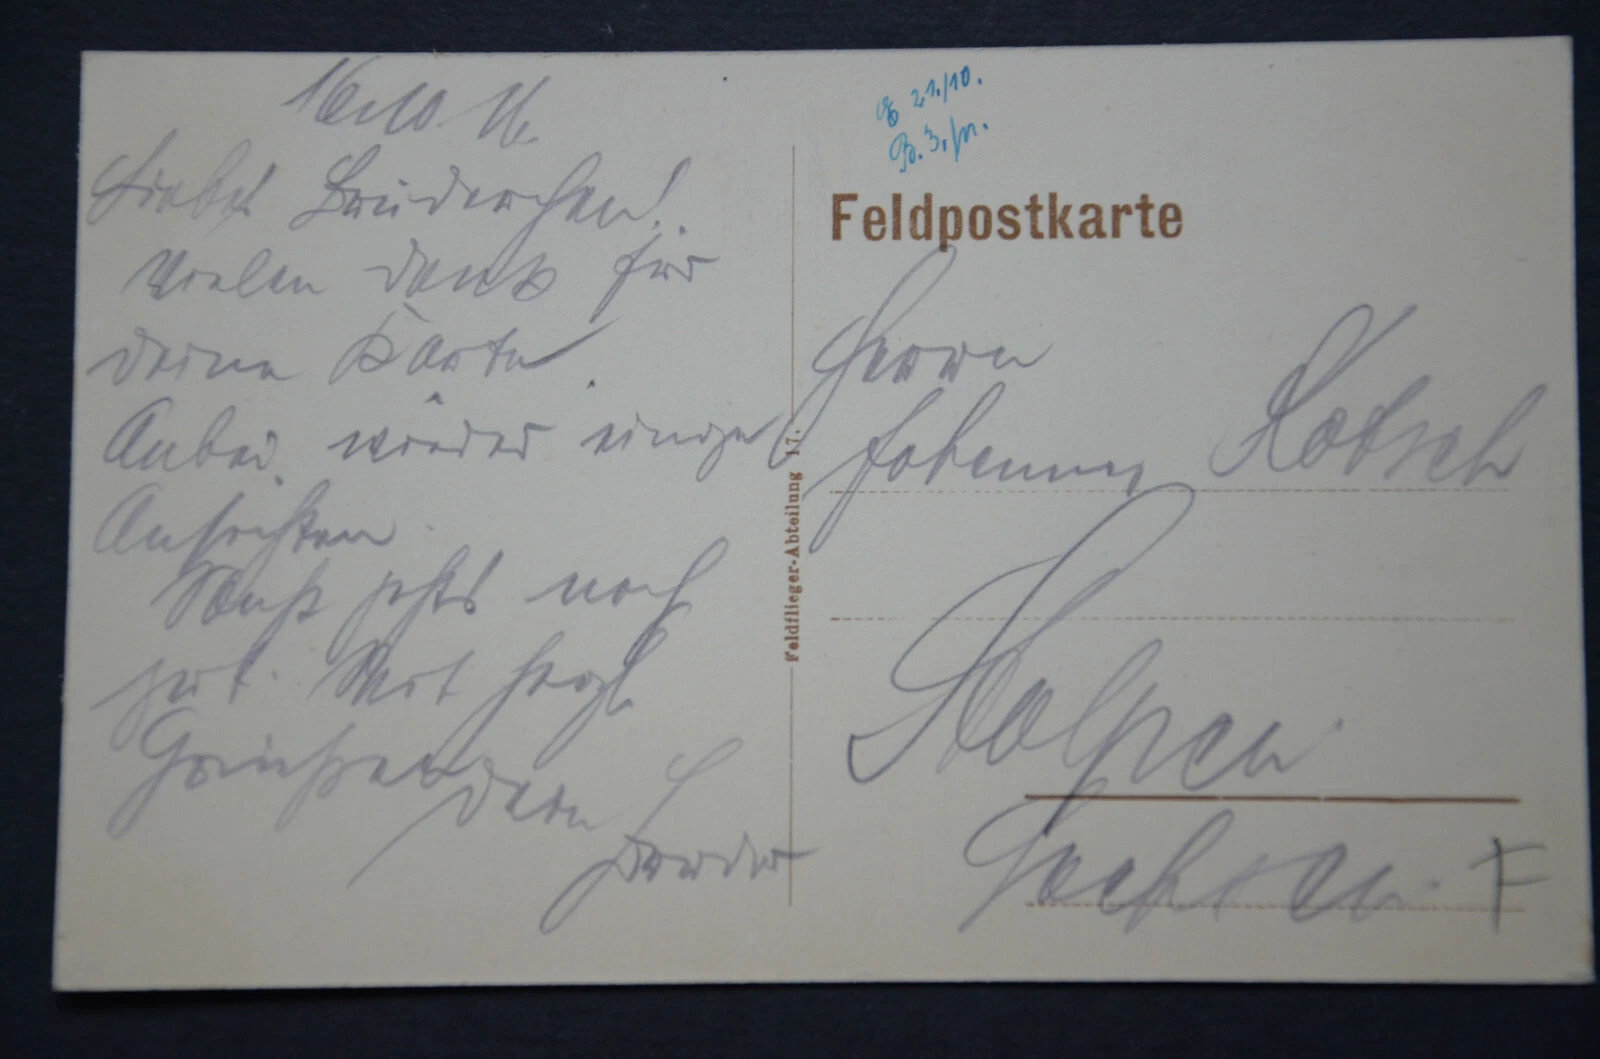 16.10.16.
Liebes Brüderchen!
Vielen Dank für
deine Karte.
Anbei wieder einige
Ansichten.
Sonst gehts noch
gut. Mit herzl
Grüßen dein
Bruder
Feldflieger-Abteilung 17.
21./10.
B. 3.
Feldpostkarte
Herrn
Johannes Kobsch
Stolpen
Sachsen F